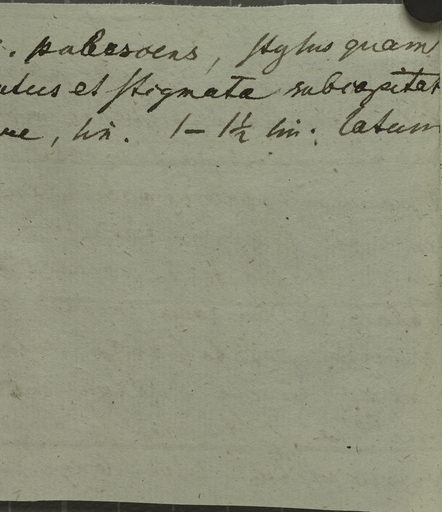 . pubescens, stylus quam
atus et stigmata subcapitat
lin. 1–1½ lin. latum